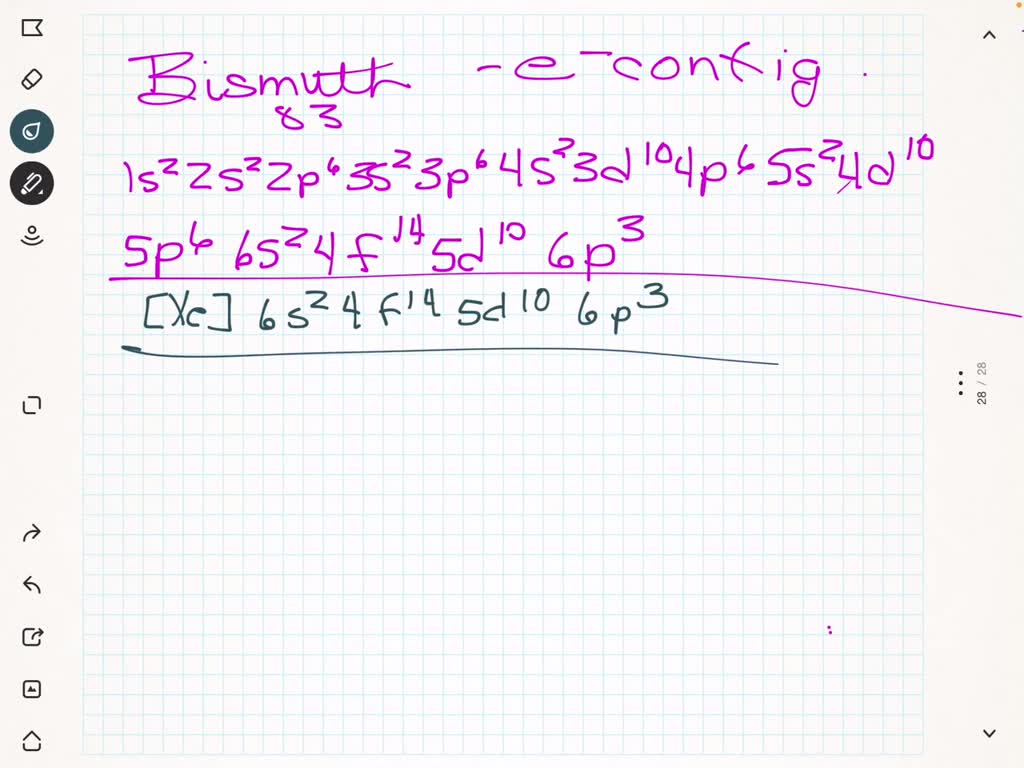 Bismuth - e⁻ config.
83
1s² 2s² 2p⁶ 3s² 3p⁶ 4s² 3d¹⁰ 4p⁶ 5s² 4d¹⁰
5p⁶ 6s² 4f¹⁴ 5d¹⁰ 6p³
[Xe] 6s² 4f¹⁴ 5d¹⁰ 6p³
28 / 28